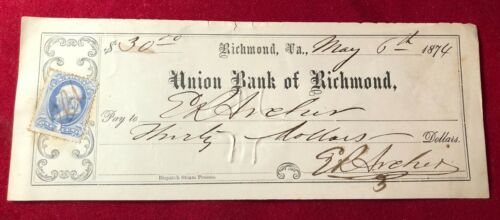 $30.00 Richmond, Va., May 6th 1874
Union Bank of Richmond,
Pay to E R Archer
Thirty Dollars Dollars.
E R Archer
Dispatch Steam Presses.